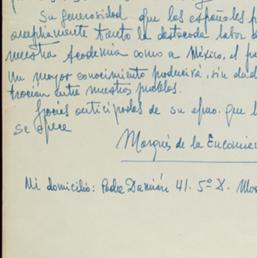 Su generosidad que los españoles
ampliamente tanto la destacada labor d
nuestra Academia como a México, el p
Un mayor conocimiento producirá, sin du
entre nuestros pueblos.
Gracias anticipadas de su afmo. que l
se ofrece
Marqués de la Encomien
Mi domicilio: Padre Damián 41. 5º D.